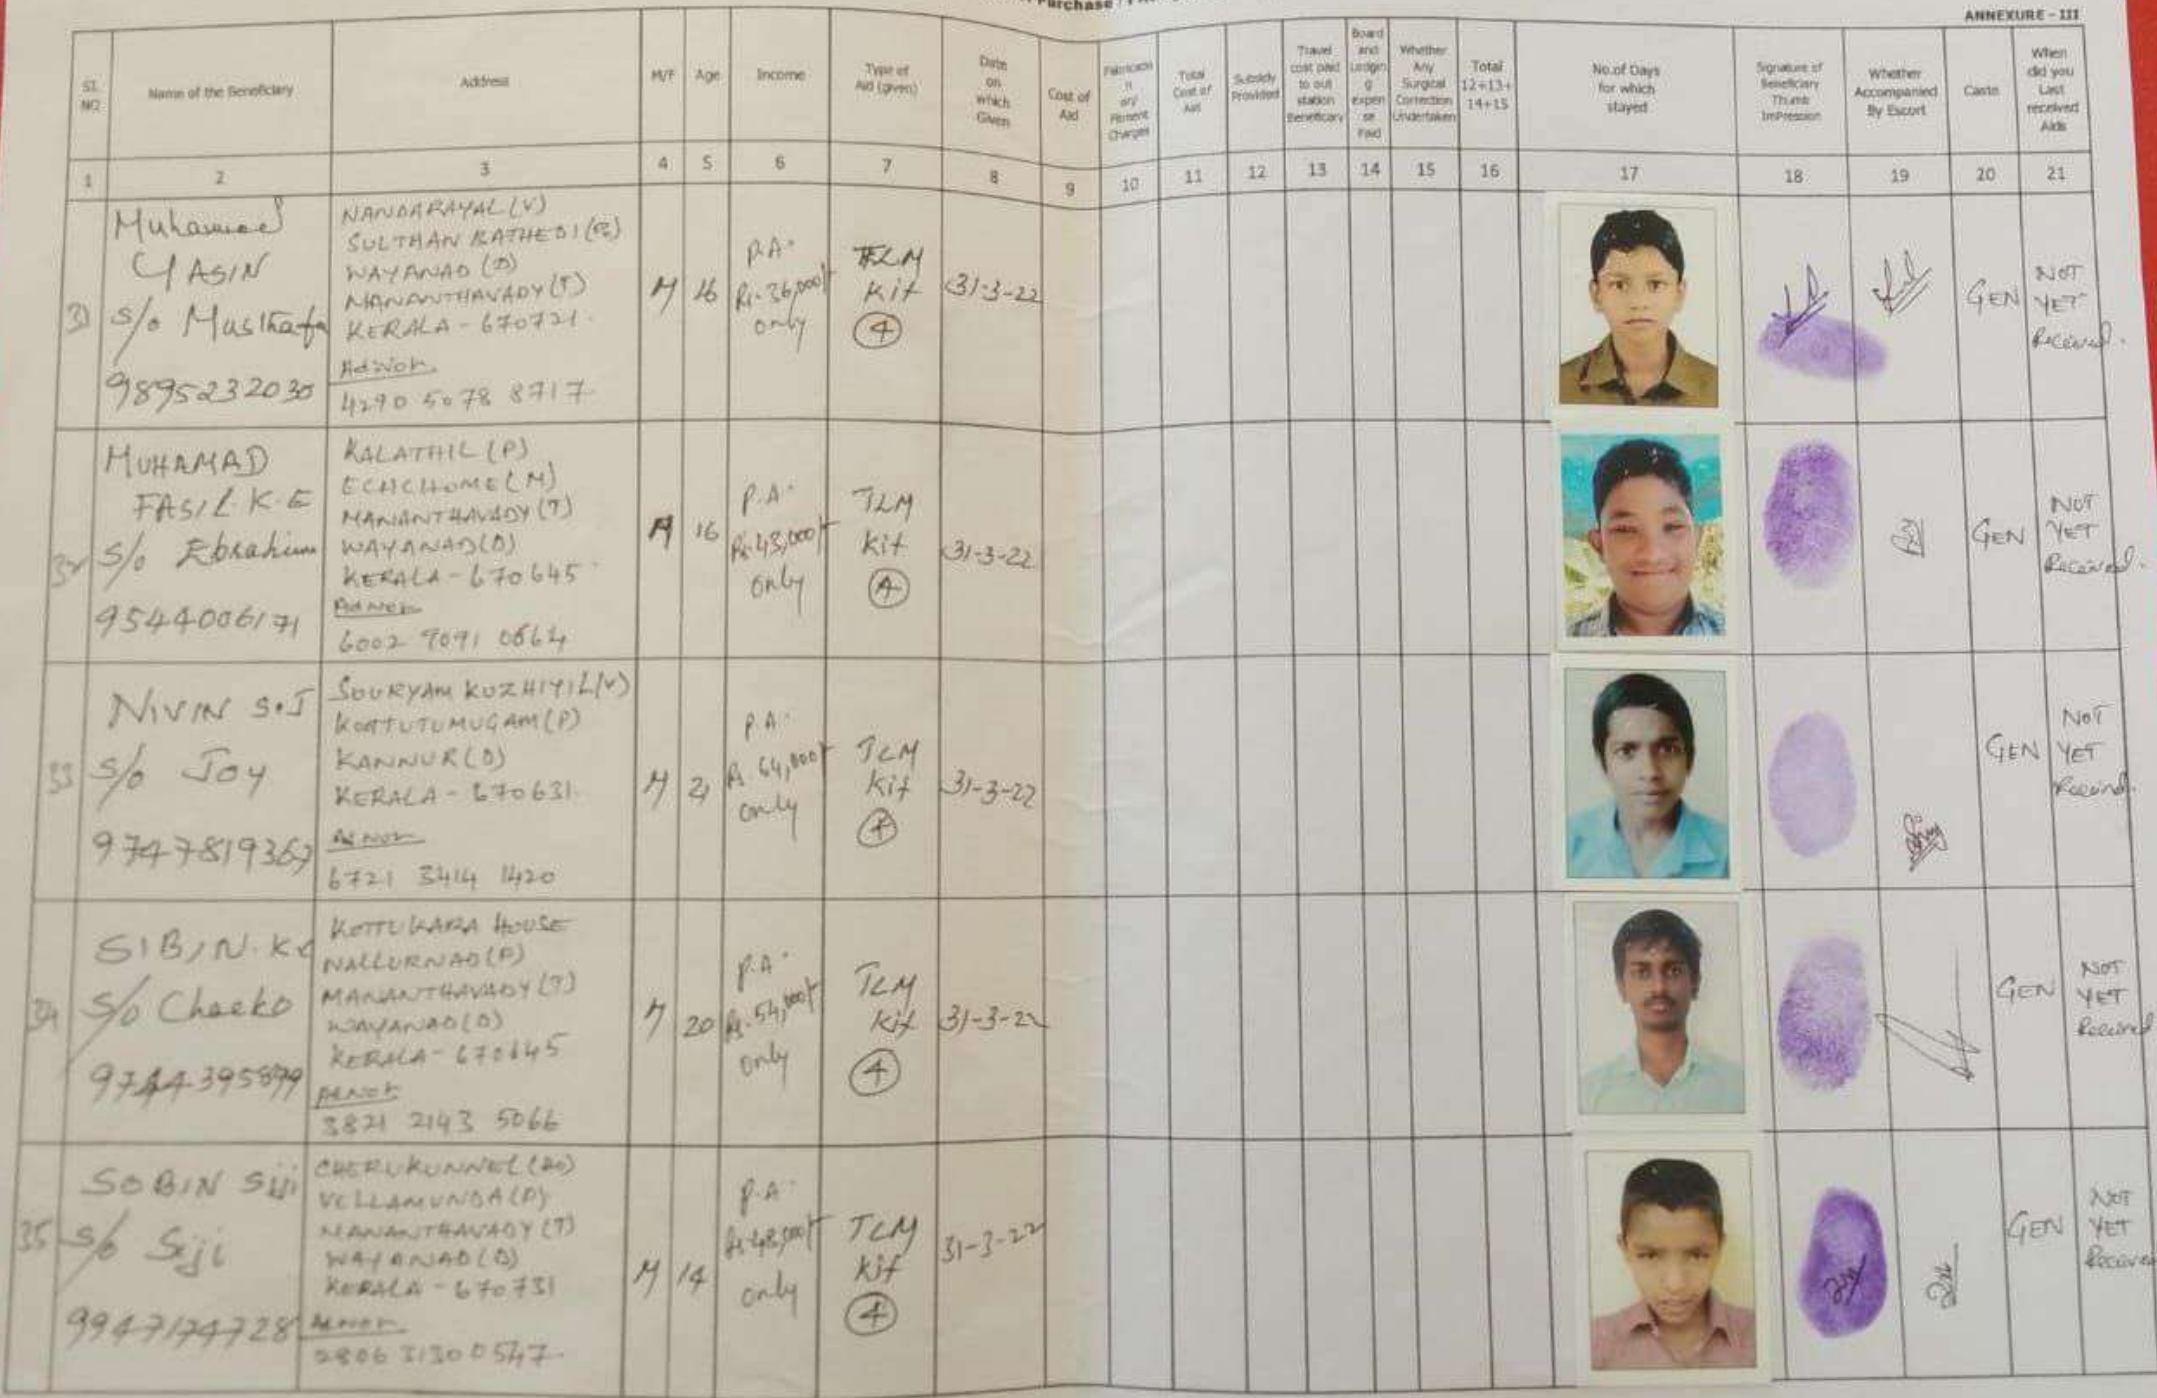 ANNEXURE - III
SL NO
Name of the Beneficiary
Address
M/F
Age
Income
Type of Aid (given)
Date on which Given
Cost of Aid
Fabrication ary/ Fitment Charges
Total Cost of Aid
Subsidy Provided
Travel cost paid to out station Beneficiary
Board and Lodging expense Paid
Whether Any Surgical Correction Undertaken
Total 12+13+14+15
No.of Days for which stayed
Signature of Beneficiary Thumb ImPression
Whether Accompanied By Escort
Caste
When did you Last received Aids
1 2 3 4 5 6 7 8 9 10 11 12 13 14 15 16 17 18 19 20 21
31
Muhamed
YASIN
s/o Musthafa
9895232030
(V)
SULTHAN BATHEDI
WAYANAD (D)
MANANTHAVADY (T)
KERALA - 670721.
4290 5078 8717
M
16
P.A.
Rs. 36,000/-
only
TLM
Kit
4
31-3-22
GEN
NOT
YET
Received.
32
MUHAMAD
FASIL. K. E
s/o Ebrahim
9544006171
KALATHIL (P)
ECHCHOME (M)
MANANTHAVADY (T)
WAYANAD (D)
KERALA - 670645
6002 9091
M
16
P.A.
Rs. 43,000/-
only
TLM
Kit
4
31-3-22
GEN
NOT
YET
Received.
33
NIVIN S.J
s/o Joy
9747819367
KUZHIYIL (V)
(P)
KANNUR (D)
KERALA - 670631.
6721 3414 1420
M
21
P.A.
Rs. 64,000/-
only
TLM
Kit
4
31-3-22
GEN
NOT
YET
Received.
34
SIBIN.
s/o Chacko
KOTTUKARA HOUSE
NALLURNAD (P)
MANANTHAVADY (T)
WAYANAD (D)
KERALA - 670645
3821 2143 5066
M
20
P.A.
Rs. 54,000/-
only
TLM
Kit
4
31-3-22
GEN
NOT
YET
Received
35
SOBIN Siji
s/o Siji
9947174728
CHERUKUNNEL
VELLAMUNDA (P)
MANANTHAVADY (T)
WAYANAD (D)
KERALA - 670731
2806 3130 0547
M
14
P.A.
Rs. 48,000/-
only
TLM
Kit
4
31-3-22
GEN
NOT
YET
Received